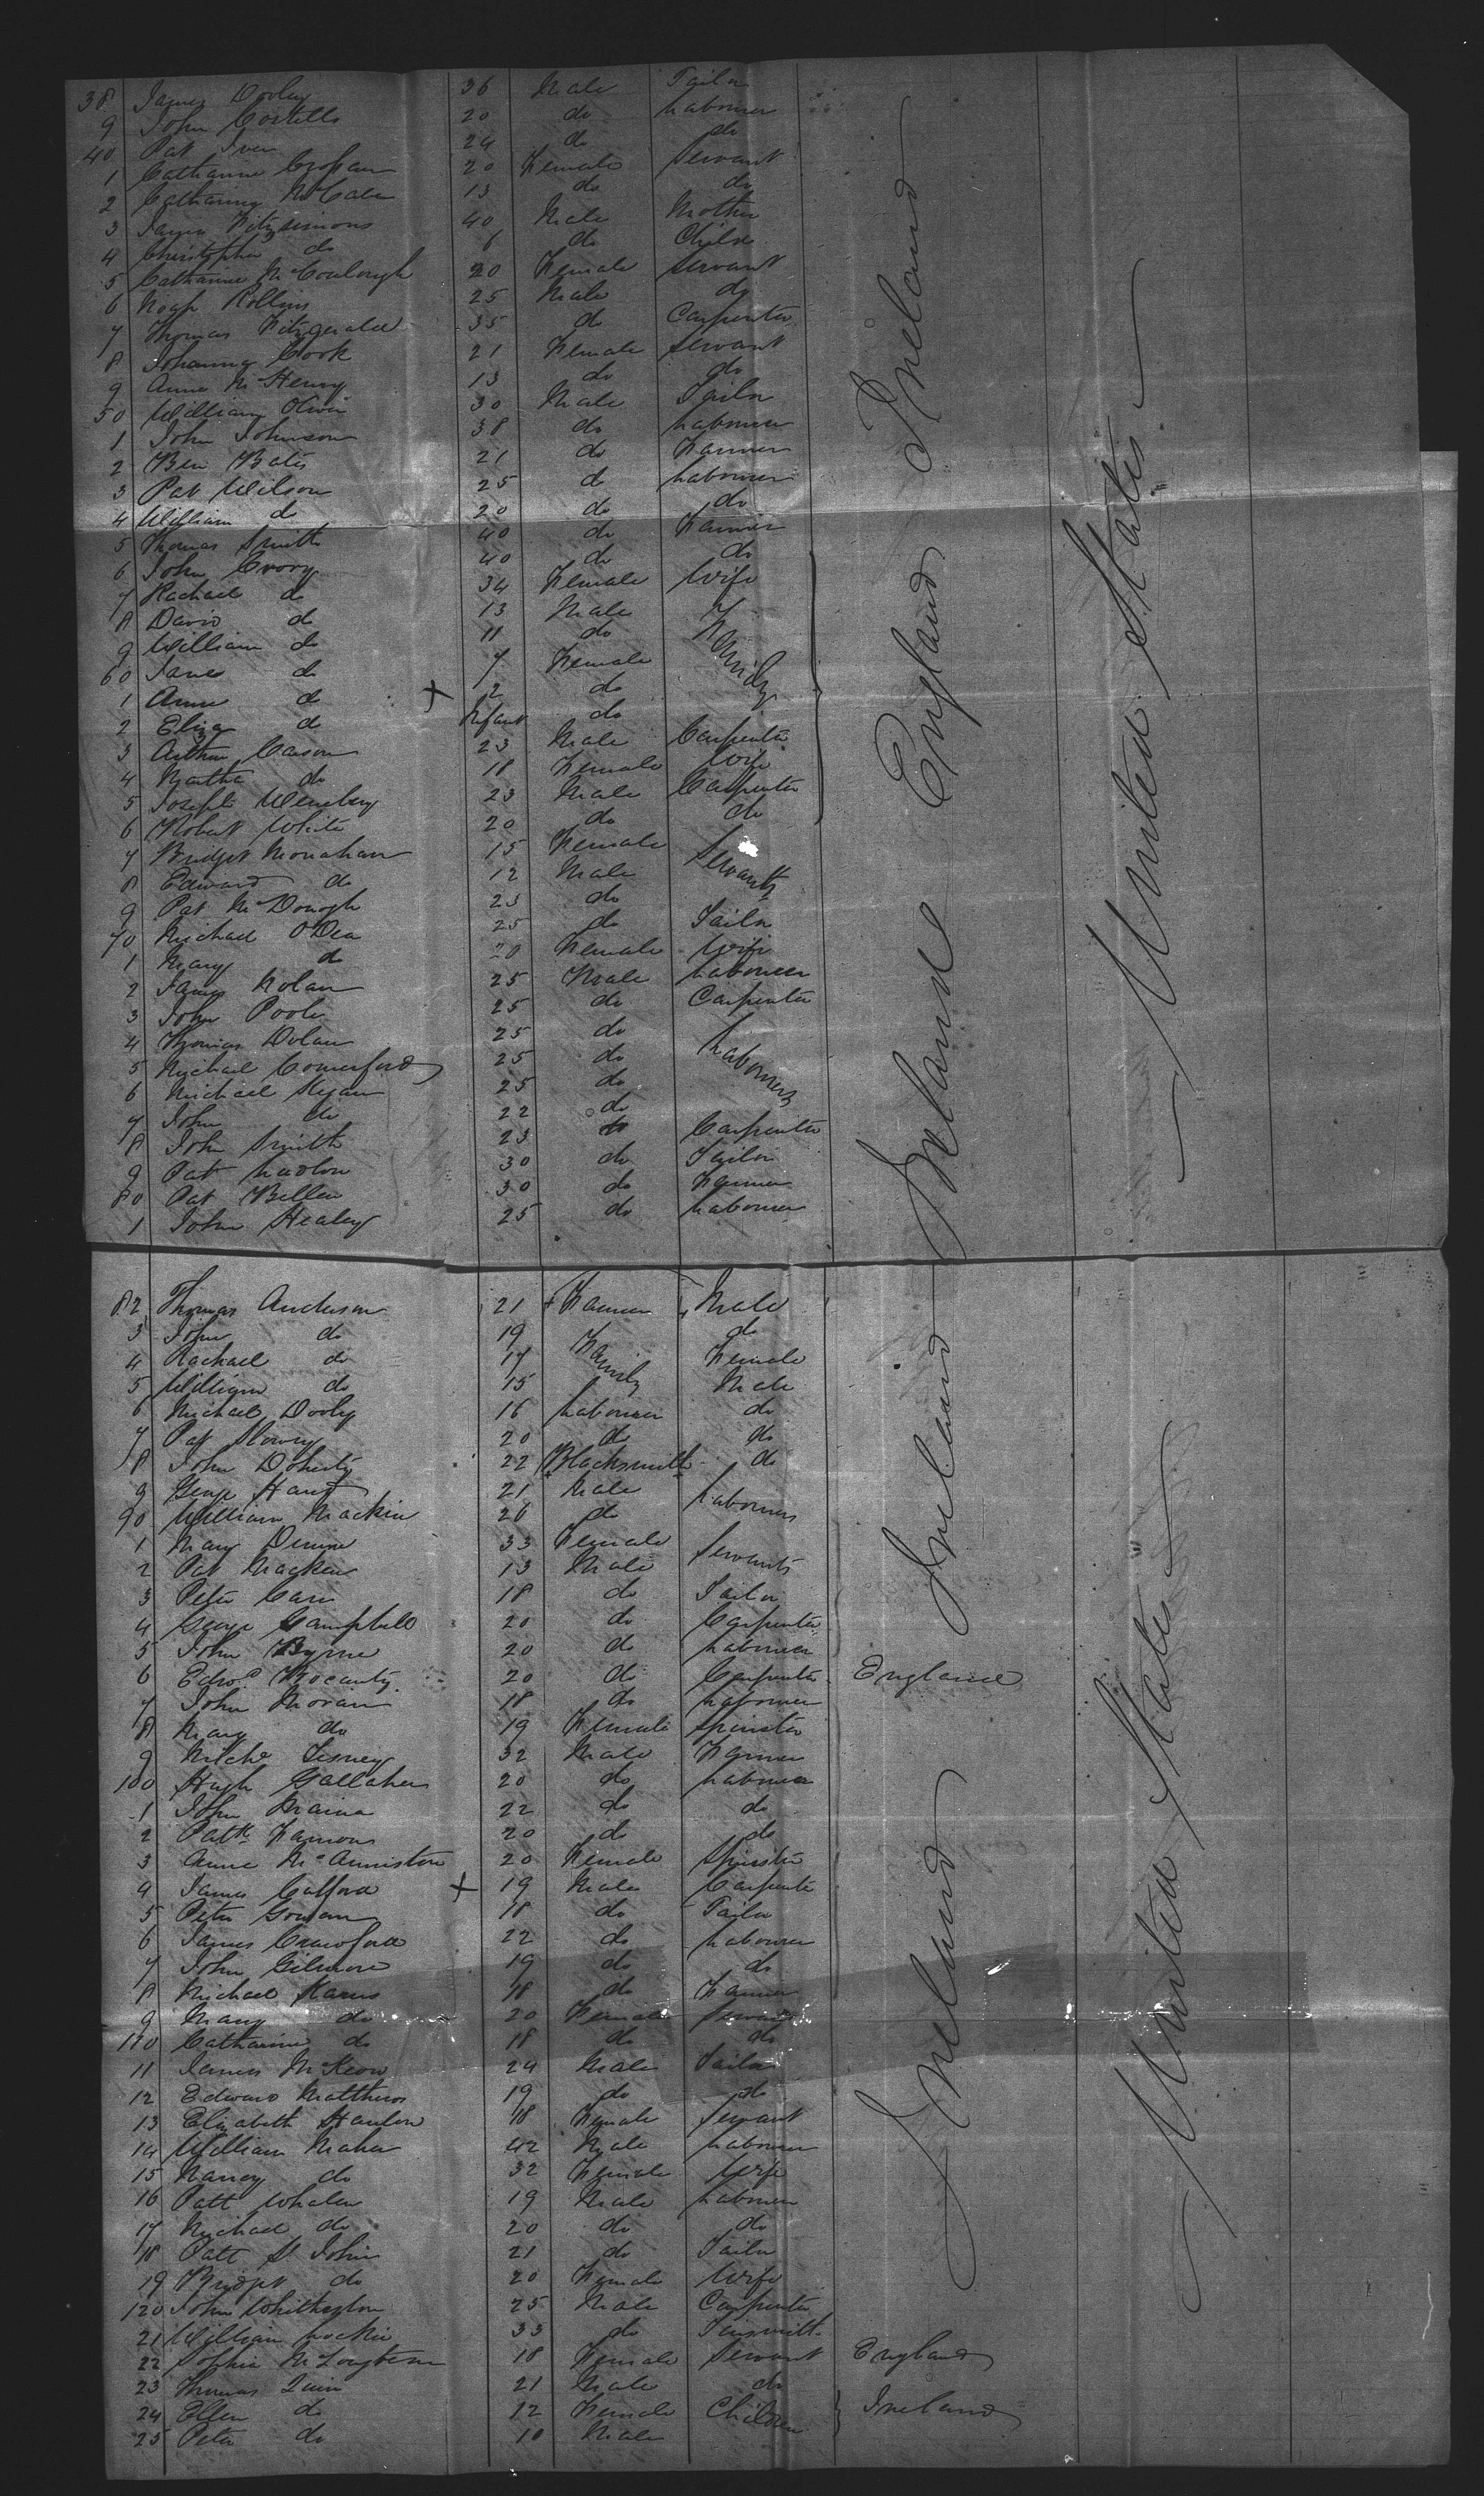 38 James Dooley 36 Male Tailor
9 John Costello 20 do Labourer
40 Pat 24 do do
1 Catharine 20 Female Servant
2 Catharine McCabe 13 do do
3 Fitzsimons 40 Male Mother
4 Christopher do 6 do Child
5 Catharine McCoulough 20 Female Servant
6 Hugh Rollins 25 Male do
7 Thomas Fitzgerald 35 do Carpenter
8 Johanna Cook 21 Female Servant
9 Anne McHenry 13 do do
50 William 30 Male Tailor
1 John Johnson 38 do Labourer
2 Ben Bates 21 do Farmer
3 Pat Wilson 25 do Labourer
4 William do 20 do do
5 Thomas Smith 40 do Farmer
6 John 40 do do
7 Rachael do 34 Female Wife
8 David do 13 Male Family
9 William do 11 do
60 Jane do 7 Female
1 Anne do X 2 do
2 Eliza do Infant do
3 Arthur Carson 23 Male Carpenter
4 Martha do 18 Female Wife
5 Joseph 23 Male Carpenter
6 Robert White 20 do do
7 Bridget Monahan 15 Female Servants
8 Edward do 12 Male
9 Pat McDonogh 23 do
70 Michael O'Dea 25 do Tailor
1 Mary do 20 Female Wife
2 James Nolan 25 Male Labourer
3 John Poole 25 do Carpenter
4 Thomas Dolan 25 do Labourers
5 Michael Comerford 25 do
6 Michael Ryan 25 do
7 John do 22 do
8 John Smith 23 do Carpenter
9 Pat 30 do Tailor
80 Pat Bellew 30 do Farmer
1 John Healey 25 do Labourer
Ireland England Ireland
United States
82 Thomas Anderson 21 Farmer Male
3 John do 19 Family do
4 Rachael do 17 Female
5 William do 15 Male
6 Michael Dooly 16 Labourer do
7 Pat 20 do do
8 John Doherty 22 Blacksmith do
9 George 21 Male Labourers
90 William Mackin 26 do
1 Mary 33 Female Servants
2 Pat Macken 13 Male
3 Peter 18 do Tailor
4 George Campbell 20 do Carpenter
5 John Byrne 20 do Labourer
6 Edwd. 20 do Carpenter England
7 John Moran 18 do Labourer
8 Mary do 19 Female Spinster
9 32 Male Farmer
100 Hugh Gallaher 20 do Labourer
1 John 22 do do
2 Patk. 20 do do
3 Anne 20 Female Spinster
4 James X 19 Male Carpenter
5 Peter 18 do Tailor
6 James Crawford 22 do Labourer
7 John Gilmore 19 do do
8 Michael 18 do Farmer
9 Mary do 20 Female Servant
110 Catharine do 18 do do
11 James McKeon 24 Male Tailor
12 Edward Matthews 19 do do
13 Elizabeth Hanlon 18 Female Servant
14 William Maher 42 Male Labourer
15 Nancy do 32 Female Wife
16 Patt Whalen 19 Male Labourer
17 Michael do 20 do do
18 Patt St John 21 do Tailor
19 Bridget do 20 Female Wife
120 John 25 Male Carpenter
21 William 33 do Tinsmith
22 Sophia 18 Female Servant England
23 Thomas Quin 21 Male do
24 Ellen do 12 Female Children Ireland
25 Peter do 10 Male
Ireland Ireland
United States